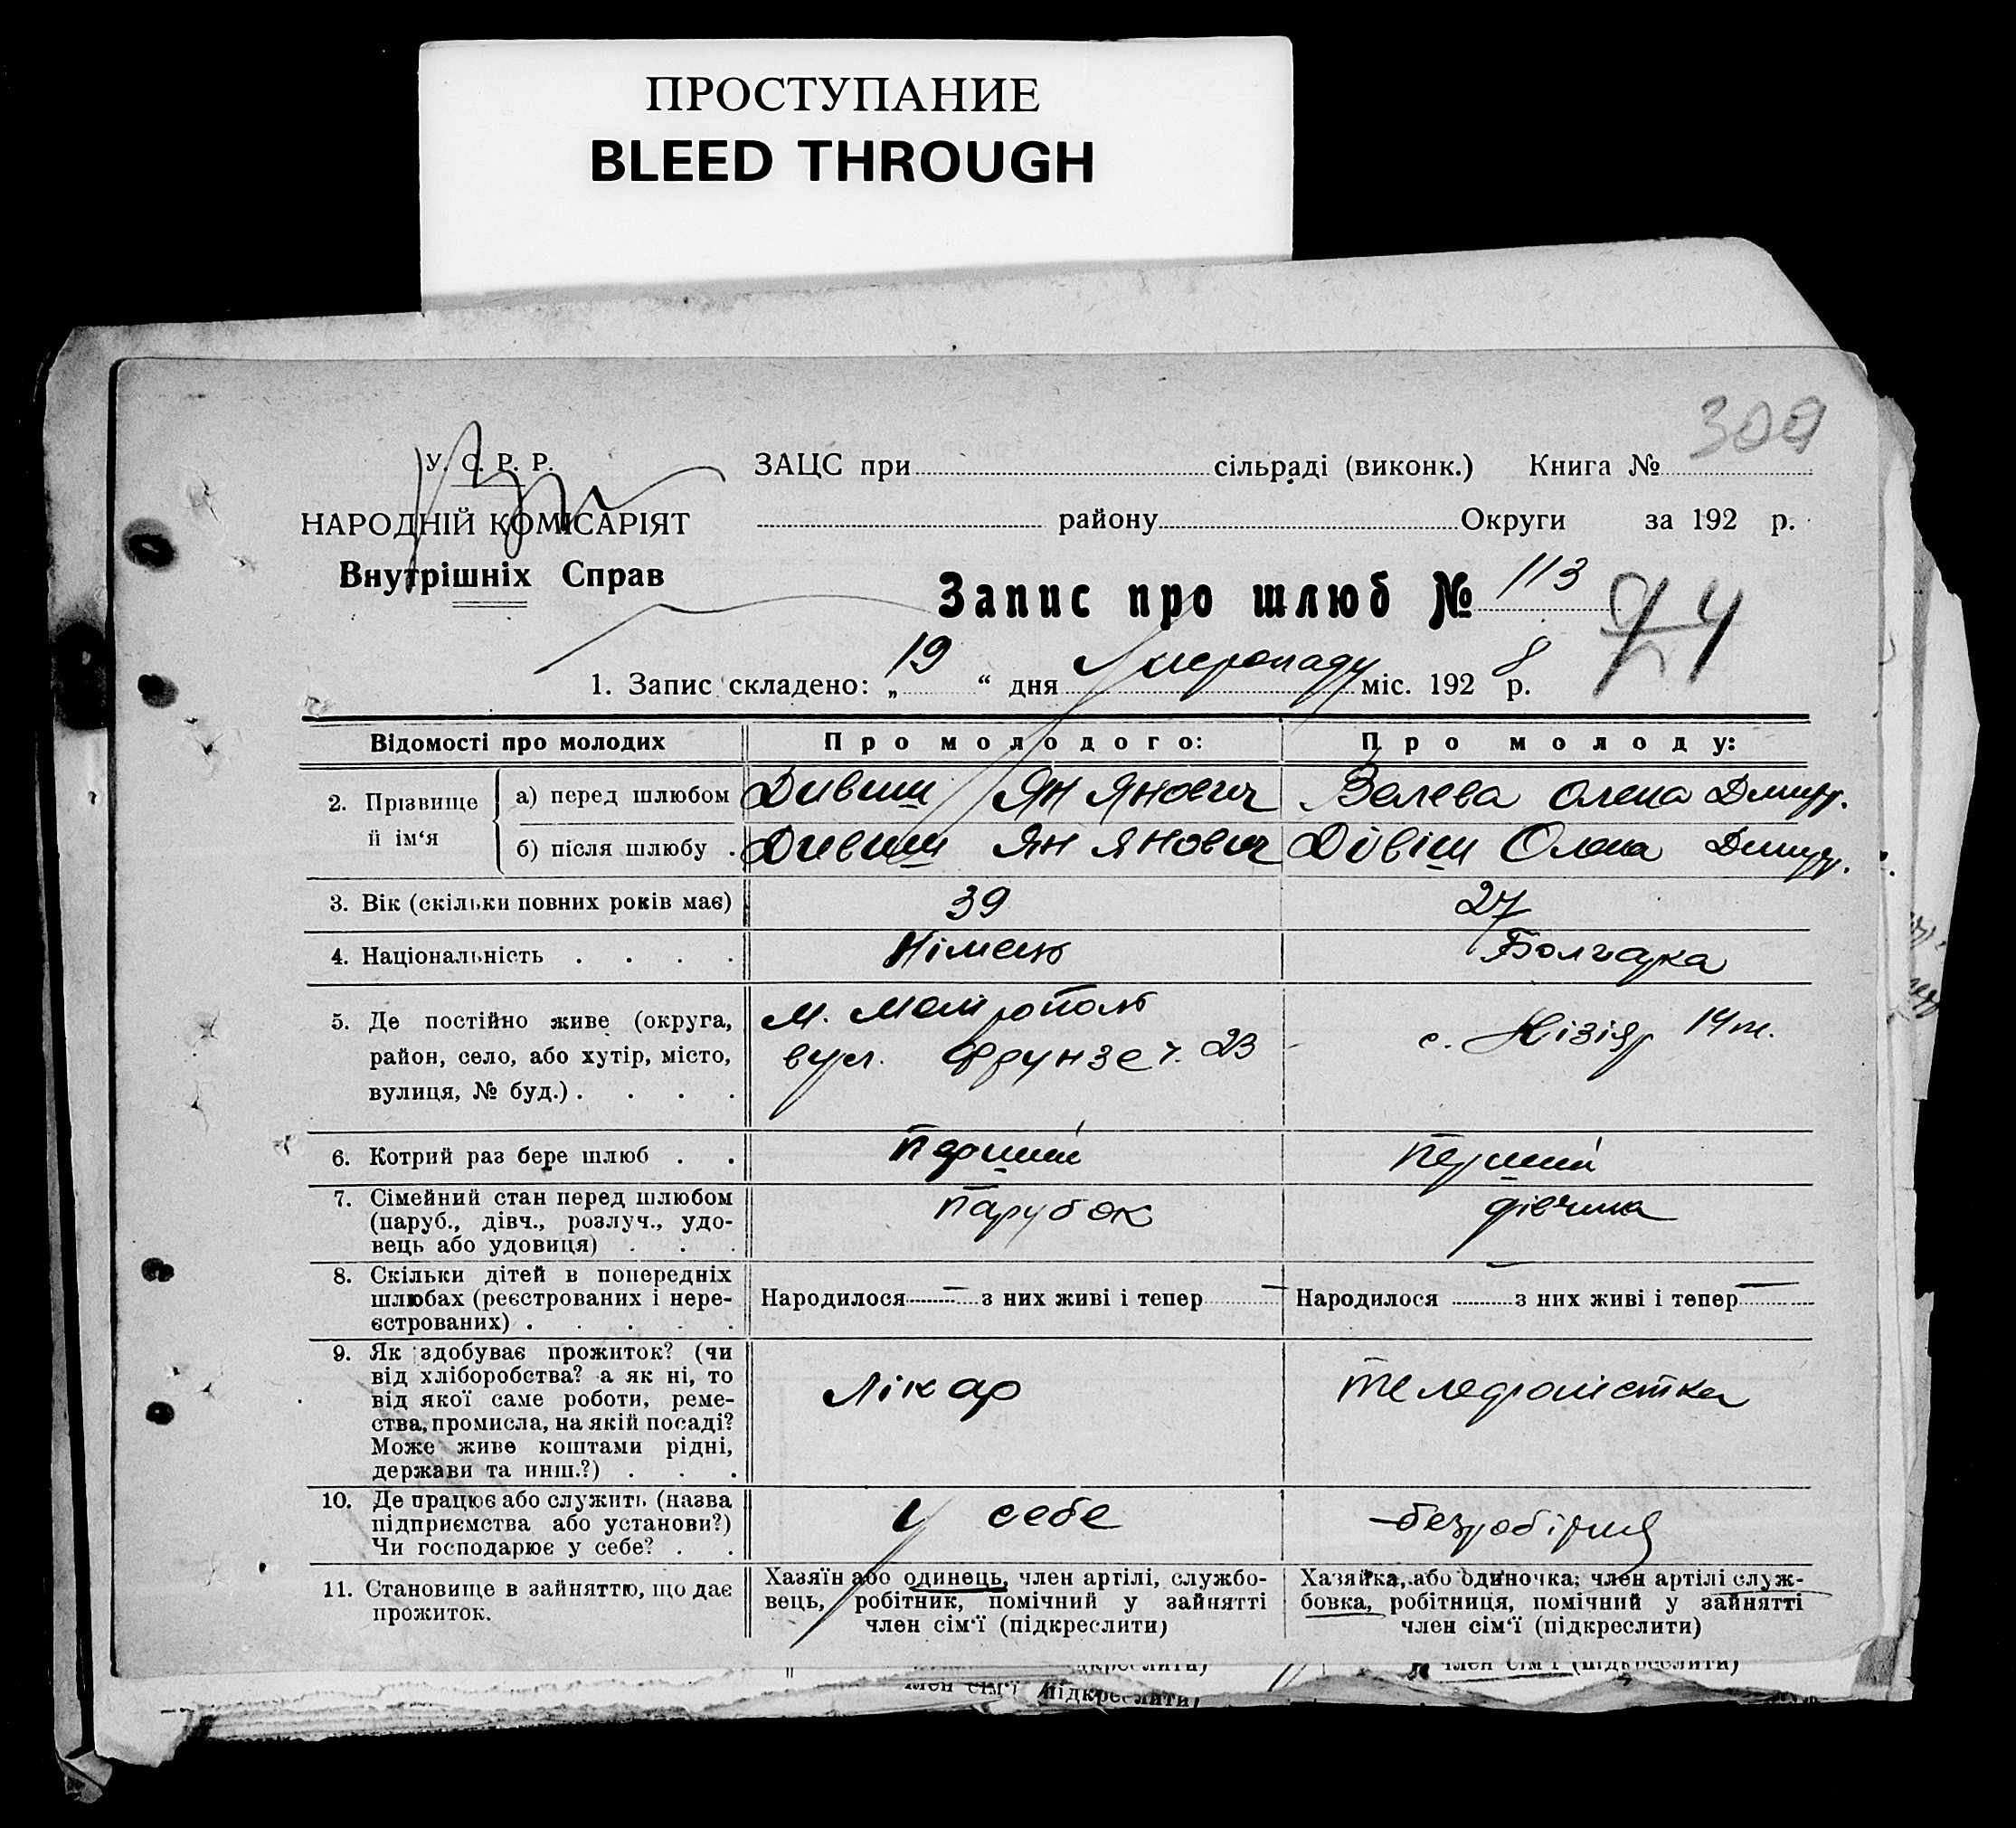 ПРОСТУПАНИЕ
BLEED THROUGH
300
У. С. Р. Р.
НАРОДНІЙ КОМІСАРІЯТ
Внутрішніх Справ
ЗАЦС при сільраді (виконк.) Книга №
району Округи за 192 р.
Запис про шлюб № 113
74
1. Запис складено: „ 19 “ дня Листопаду міс. 192 8 р.
Відомості про молодих Про молодого: Про молоду:
2. Прізвище й ім‘я
а) перед шлюбом Дивиш Ян Янович Велева Олена Дмитр.
б) після шлюбу . Дивиш Ян Янович Дівіш Олена Дмитр.
3. Вік (скільки повних років має) 39 27
4. Національність . . . . Німець Болгарка
5. Де постійно живе (округа,
район, село, або хутір, місто,
вулиця, № буд.) . . . .
м. Мелітополь
вул. Фрунзе ч. 23
с. Кізіяр
6. Котрий раз бере шлюб . . Перший Перший
7. Сімейний стан перед шлюбом
(паруб., дівч., розлуч., удо-
вець або удовиця) . . .
Парубок дівчина
8. Скільки дітей в попередніх
шлюбах (реєстрованих і нере-
єстрованих) . . . . .
Народилося — з них живі і тепер — Народилося — з них живі і тепер —
9. Як здобуває прожиток? (чи
від хліборобства? а як ні, то
від якої саме роботи, реме-
ства, промисла, на якій посаді?
Може живе коштами рідні,
держави та инш.?) . . .
Лікар телефоністка
10. Де працює або служить (назва
підприємства або установи?)
Чи господарює у себе? . .
у себе безробітня
11. Становище в зайняттю, що дає
прожиток.
Хазяїн або одинець, член артілі, службо-
вець, робітник, помічний у зайнятті
член сім‘ї (підкреслити)
Хазяйка, або одиночка; член артілі служ-
бовка, робітниця, помічний у зайнятті
член сім‘ї (підкреслити)
член сім‘ї (підкреслити)
член сім‘ї підкреслити)